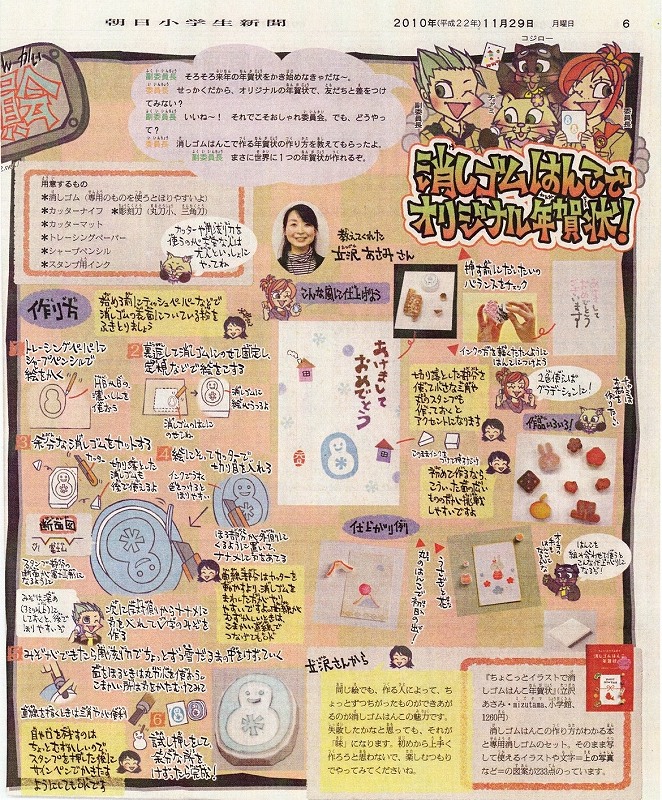 朝日小学生新聞
2010年(平成22年)11月29日 月曜日
6
コジロー
副委員長
委員長
副委員長 そろそろ来年の年賀状をかき始めなきゃだな〜。
委員長 せっかくだから、オリジナルの年賀状で、友だちと差をつけ
てみない?
副委員長 いいね〜! それでこそおしゃれ委員会。でも、どうやっ
て?
委員長 消しゴムはんこで作る年賀状の作り方を教えてもらったよ。
副委員長 まさに世界に1つの年賀状が作れるぞ。
消しゴムはんこで
オリジナル年賀状!
用意するもの
＊消しゴム(専用のものを使うとほりやすいよ)
＊カッターナイフ ＊彫刻刀(丸刀小、三角刀)
＊カッターマット
＊トレーシングペーパー
＊シャープペンシル
＊スタンプ用インク
カッターや彫刻刀を
使うのが不安な人は
大人といっしょに
やってね
教えてくれた
立沢 あさみ さん
こんな風に仕上げよう
押す前にだいたいの
バランスをチェック
インクの方を軽くたたくように
はんこにつけよう
あけまして
おめでとう
作り方
始める前にティッシュペーパーなどで
消しゴムの表面についている粉を
ふきとりましょう
1 トレーシングペーパーに
シャープペンシルで
絵をかく
HBかBの
濃くらいを
使おう
2 裏返して消しゴムにのせて固定し、
定規などで絵をこする
消しゴムのはしに
のせてね
消しゴムに
絵がうつるよ
3 余分な消しゴムをカットする
カッター
切り落とした
消しゴムも
後で使えるよ
4 絵にそってカッターで
切り目を入れる
インクでうすく
色をつけると
ほりやすい
ほる部分が外側に
くるように置いて、
ナナメに刃をあてる
断面図
スタンプ部分の
断面が富士山形に
なるように
みぞは深め
(3ミリ以上)に
しておくと、後で
ほりやすいぞ
次に反対側からナナメに
刃を入れてV字のみぞを
作る
曲線部分はカッターを
動かすより、消しゴムを
まわした方がやり
やすいですよ。曲線が
むずかしいときは、
こまかい直線で
つなげてもOK
切り落とした部分を
使って小さな三角や
丸のスタンプも
作っておくと
アクセントになります
2色使えば
グラデーションに!
作品いろいろ!
初めて作るなら、
こういった面の広い
ものの方が挑戦
しやすいですよ
仕上がり例
はんこを
組み合わせて使うと
こんな仕上がりに
なるぞ!
5 みぞができたら彫刻刀でちょっとずつ周りから真ん中をけずっていく
面をほるときは丸刀小を使おう。
こまかい所は刃をかたむけてみて
直線を描くときは三角刀が便利
目や口を残すのは
ちょっとむずかしいので、
スタンプを押した後に
サインペンでかきたす
ようにしてもOKです
6 試し押しをして、
余分な所を
けずったら完成!
立沢さんから
同じ絵でも、作る人によって、ち
ょっとずつちがったものができあが
るのが消しゴムはんこの魅力です。
失敗したかなと思っても、それが
「味」になります。初めから上手く
作ろうと思わないで、楽しむつもり
でやってみてくださいね。
『ちょこっとイラストで消
しゴムはんこ年賀状』(立沢
あさみ・mizutama、小学館、
1260円)
消しゴムはんこの作り方がわかる本
と専用消しゴムのセット。そのまま写
して使えるイラストや文字＝上の写真
など＝の図案が233点のっています。